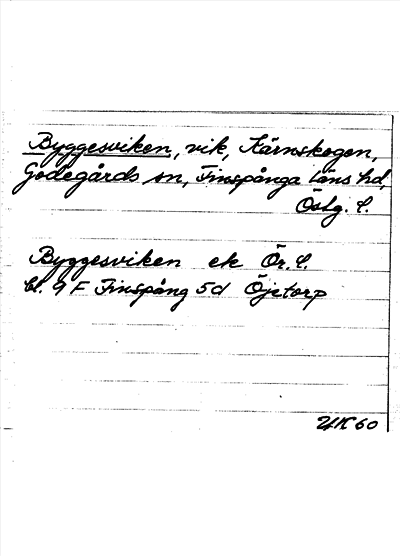 Byggesviken, vik, Kärnskogen,
Godegårds sn, Finspånga läns hd,
Östg. l.
Byggesviken ek Ör. l.
bl. 9 F Finspång 5d Öjetorp
UK 60